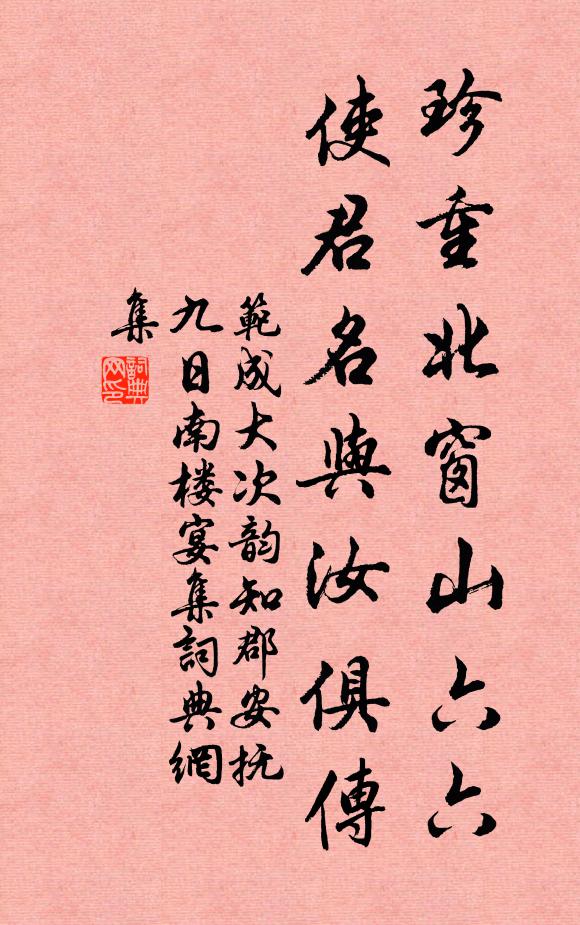 珍重北窗山六六
使君名與汝俱傳
範成大次韵知郡安抚
九日南楼宴集詞典網
集
詞典
网印